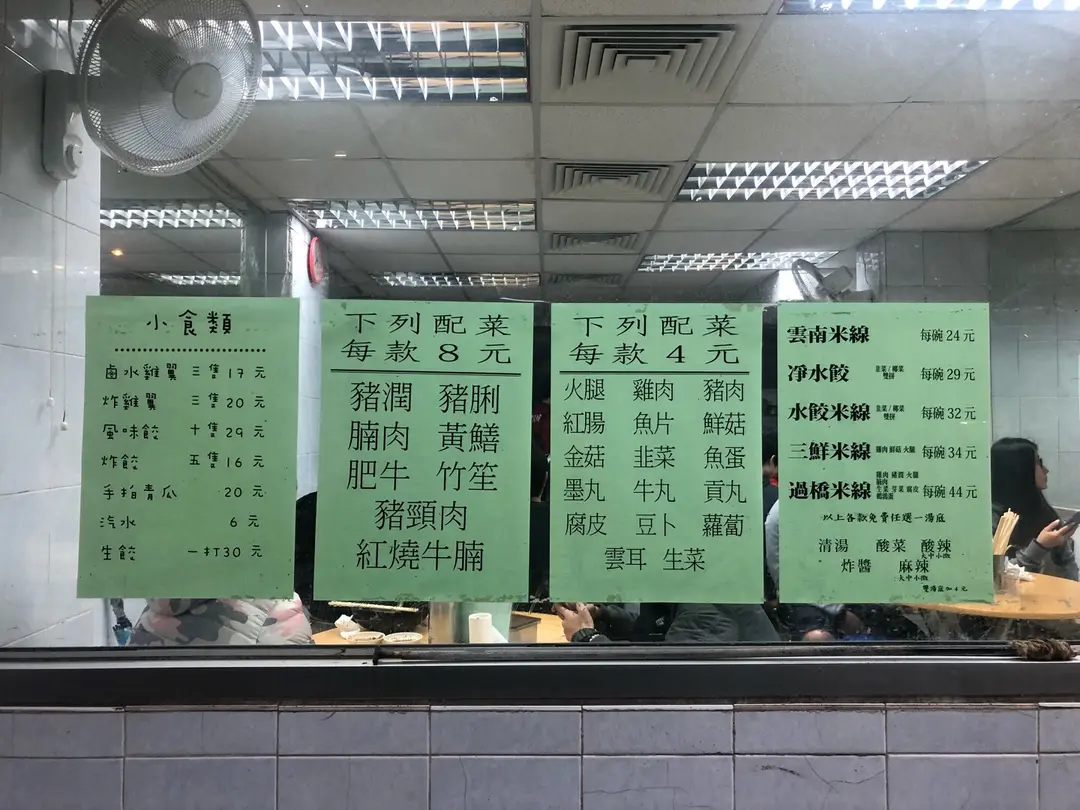 小食類
鹵水雞翼 三隻 17 元
炸雞翼 三隻 20 元
風味餃 十隻 29 元
炸餃 五隻 16 元
手拍青瓜 20 元
汽水 6 元
生餃 一打30 元
下列配菜
每款8元
豬潤 豬脷
腩肉 黃鱔
肥牛 竹笙
豬頸肉
紅燒牛腩
下列配菜
每款4元
火腿 雞肉 豬肉
紅腸 魚片 鮮菇
金菇 韭菜 魚蛋
墨丸 牛丸 貢丸
腐皮 豆卜 蘿蔔
雲耳 生菜
雲南米線 每碗 24 元
净水餃 韭菜/椰菜 雙拼 每碗 29 元
水餃米線 韭菜/椰菜 雙拼 每碗 32 元
三鮮米線 雞肉 鮮菇 火腿 每碗 34 元
過橋米線 雞肉 豬潤 火腿 腩肉 生菜 芽菜 腐皮 鵪鶉蛋 每碗 44 元
以上各款免費任選一湯底
清湯 酸菜 酸辣
大中小微
炸醬 麻辣
大中小微
雙湯底加4元